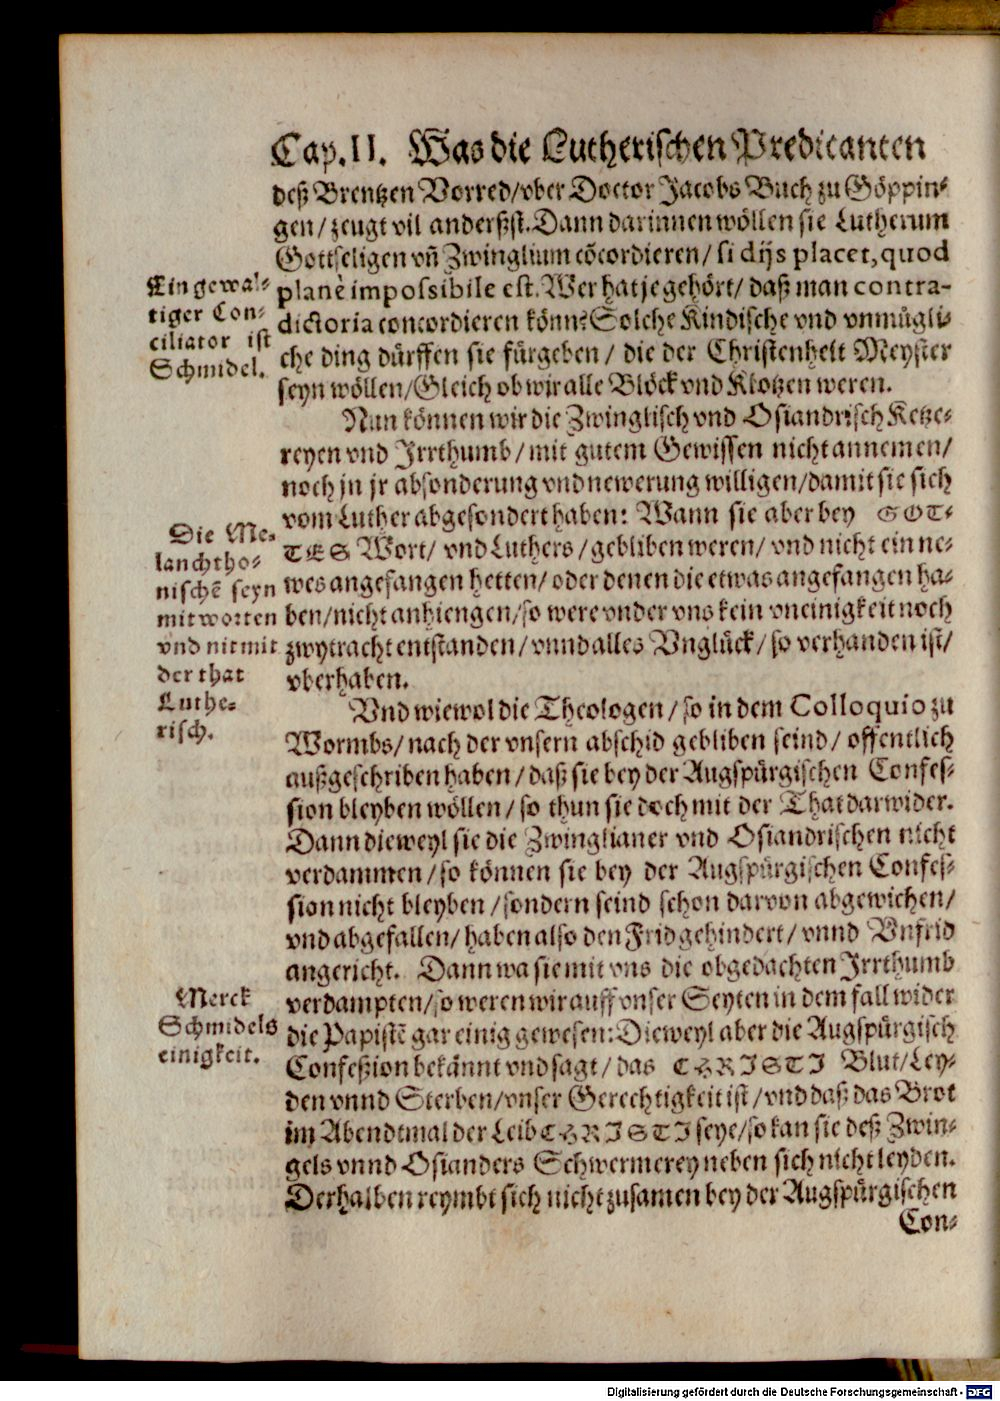 Cap. II. Was die Lutherischen Predicanten
deß Brentzen Vorred/vber Doctor Jacobs Buch zu Göppin-
gen/zeugt vil anderßst. Dann darinnen wöllen sie Lutherum
Gottseligen vñ Zwinglium cõcordieren/si dijs placet, quod
planè impossibile est. Wer hat je gehört/daß man contra-
dictoria concordieren könn? Solche Kindische vnd vnmügli-
che ding dürffen sie fürgeben/die der Christenheit Meyster
seyn wöllen/Gleich ob wir alle Blöck vnd Klotzen weren.
Ein gewal-
tiger Con-
ciliator ist
Schmidel.
Nun können wir die Zwinglisch vnd Osiandrisch Ketze-
reyen vnd Irrthumb/mit gutem Gewissen nicht annemen/
noch jn jr absonderung vnd newerung willigen/damit sie sich
vom Luther abgesondert haben: Wann sie aber bey GOT-
TES Wort/vnd Luthers/gebliben weren/vnd nicht ein ne-
wes angefangen hetten/oder denen die etwas angefangen ha-
ben/nicht anhiengen/so were vnder vns kein vneinigkeit noch
zwytracht entstanden/vnnd alles Vnglück/so verhanden ist/
vberhaben.
Die Me-
lanchtho-
nischẽ seyn
mit worten
vnd nit mit
der that
Luthe-
risch.
Vnd wiewol die Theologen/so in dem Colloquio zu
Wormbs/nach der vnsern abschid gebliben seind/offentlich
außgeschriben haben/daß sie bey der Augspürgischen Confes-
sion bleyben wöllen/so thun sie doch mit der That darwider.
Dann dieweyl sie die Zwinglianer vnd Osiandrischen nicht
verdammen/so können sie bey der Augspürgischen Confes-
sion nicht bleyben/sondern seind schon daruon abgewichen/
vnd abgefallen/haben also den Frid gehindert/vnnd Vnfrid
angericht. Dann wa sie mit vns die obgedachten Irrthumb
verdampten/so weren wir auff vnser Seyten in dem fall wider
die Papistẽ gar einig gewesen: Dieweyl aber die Augspürgisch
Confeßion bekännt vnd sagt/das CHRISTI Blut/Ley-
den vnnd Sterben/vnser Gerechtigkeit ist/vnd daß das Brot
im Abendtmal der Leib CHRISTI seye/so kan sie deß Zwin-
gels vnnd Osianders Schwermerey neben sich nicht leyden.
Derhalben reymbt sich nicht zusamen bey der Augspürgischen
Merck
Schmidels
einigkeit.
Con-
Digitalisierung gefördert durch die Deutsche Forschungsgemeinschaft - DFG